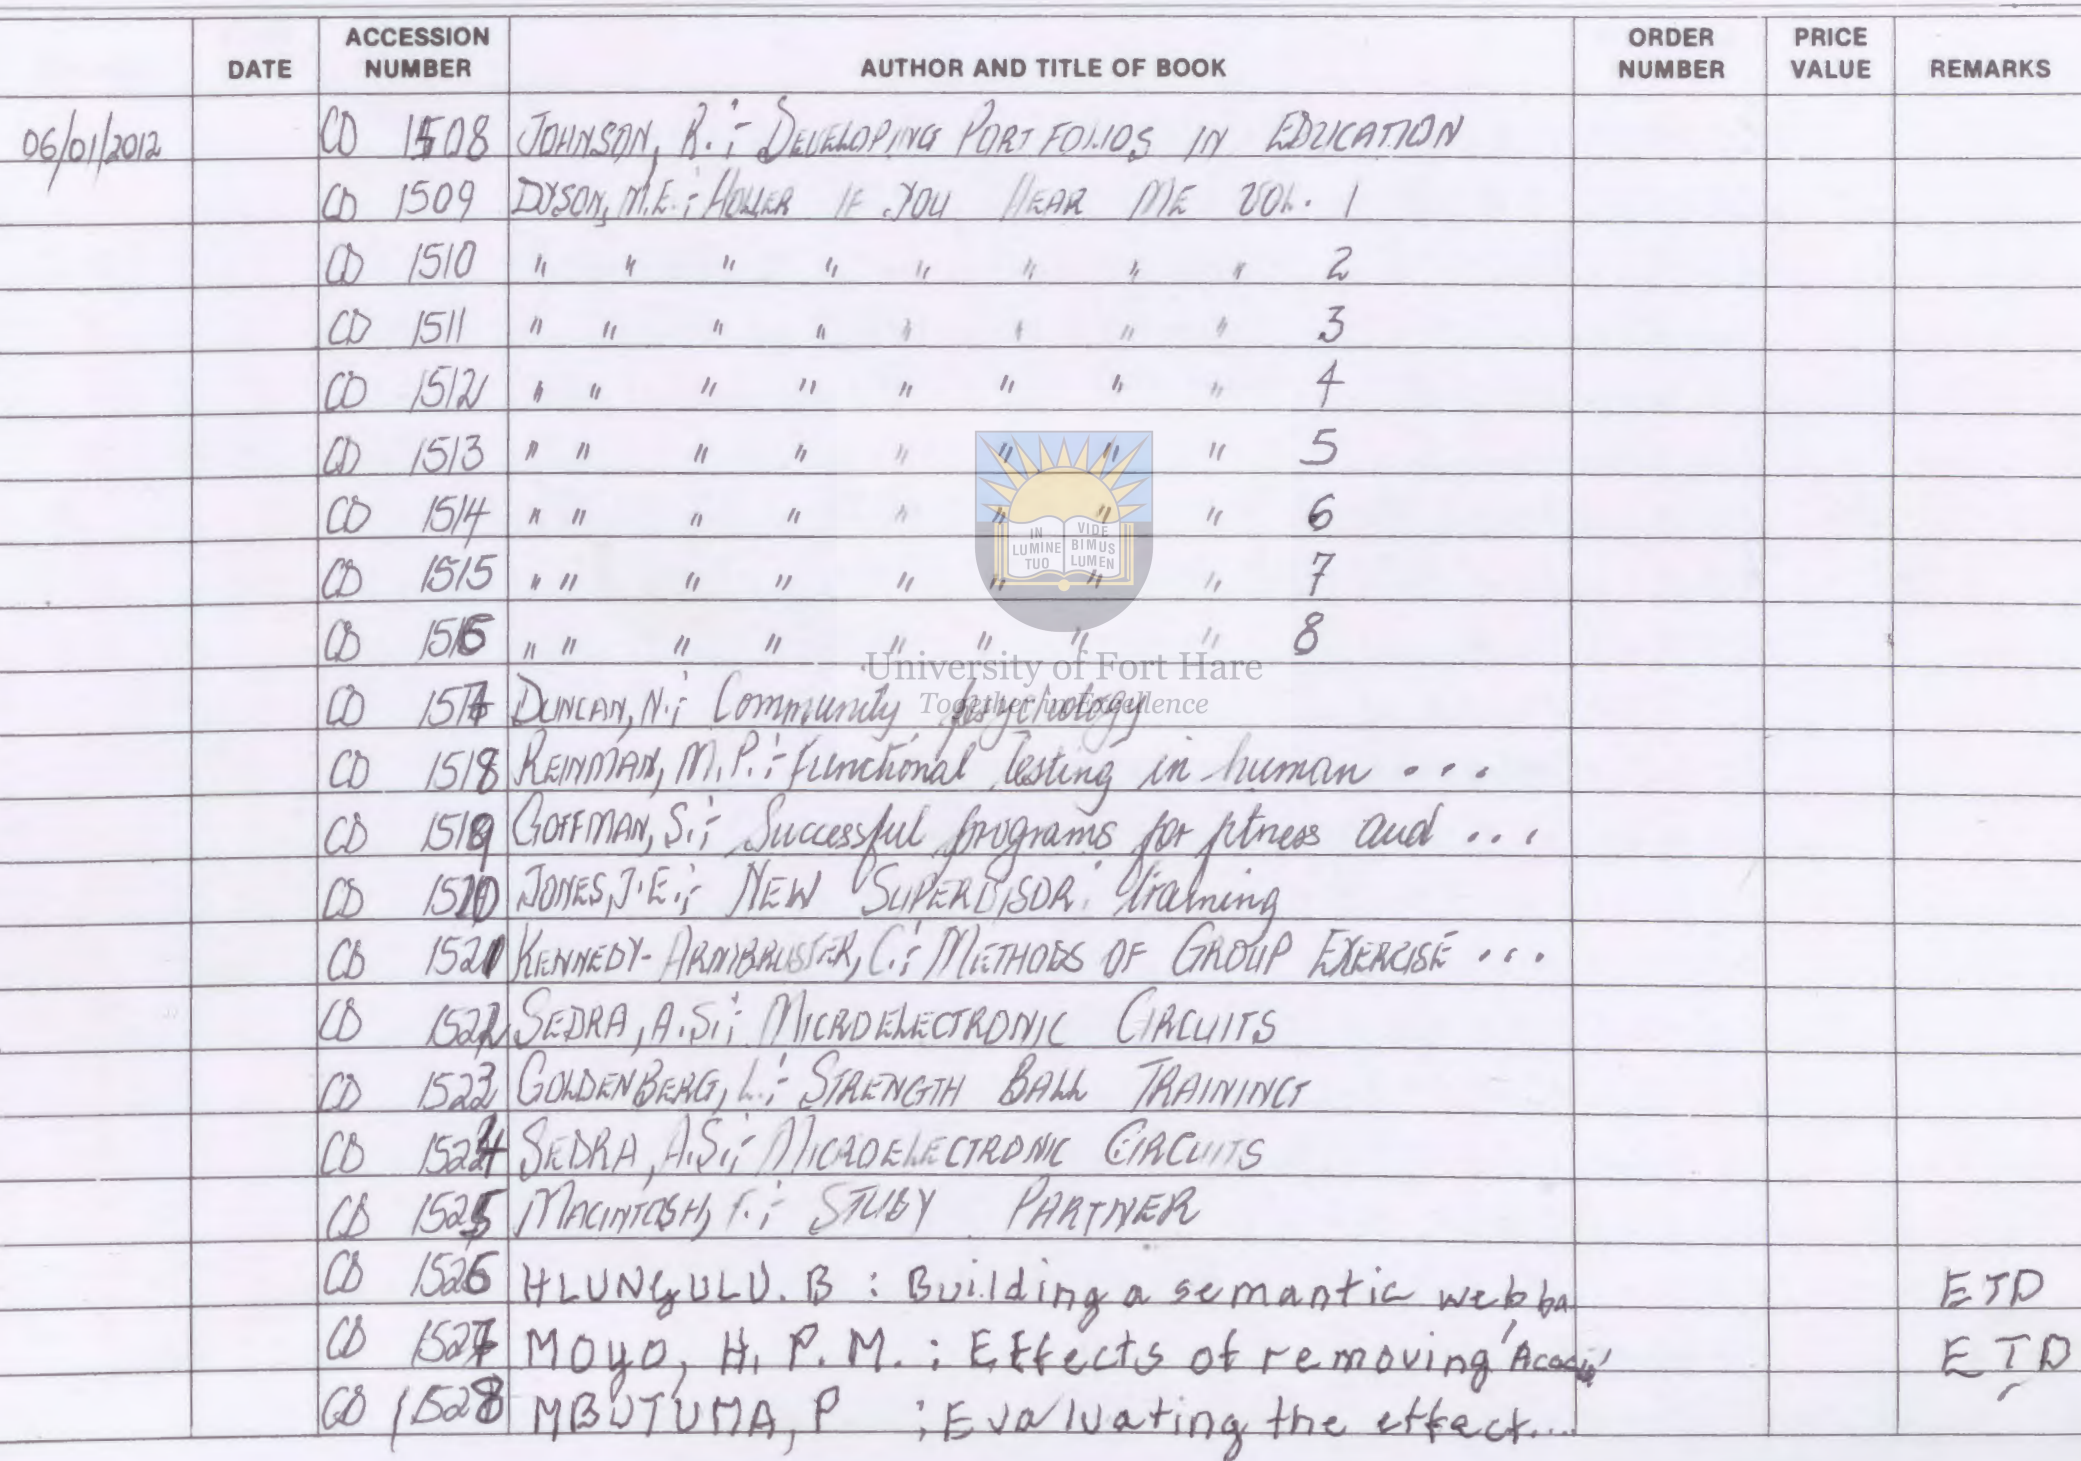 DATE ACCESSION NUMBER AUTHOR AND TITLE OF BOOK ORDER NUMBER PRICE VALUE REMARKS
06/01/2012 CD 1508 JOHNSON, R. :- DEVELOPING PORTFOLIOS IN EDUCATION
CD 1509 DYSON, M.E. :- HOLLER IF YOU HEAR ME VOL. 1
CD 1510 " " " " " " " " 2
CD 1511 " " " " " " " " 3
CD 1512 " " " " " " " " 4
CD 1513 " " " " " " " " 5
CD 1514 " " " " " " " " 6
CD 1515 " " " " " " " " 7
CD 1516 " " " " " " " " 8
CD 1517 DUNCAN, N. :- Community psychology
CD 1518 REINMAN, M.P. :- Functional testing in human ...
CD 1519 GOFFMAN, S. :- Successful programs for fitness and ...
CD 1520 JONES, J.E. :- NEW SUPERVISOR: training
CD 1521 KENNEDY-ARMBRUSTER, C. :- METHODS OF GROUP EXERCISE ...
CD 1522 SEDRA, A.S. :- MICROELECTRONIC CIRCUITS
CD 1523 GOLDENBERG, L. :- STRENGTH BALL TRAINING
CD 1524 SEDRA, A.S. :- MICROELECTRONIC CIRCUITS
CD 1525 MACINTOSH, F. :- STUDY PARTNER
CD 1526 HLUNGULU. B : Building a semantic web, ba ETD
CD 1527 MOYO, H. P. M. : Effects of removing 'Acacia' ETD
CD 1528 MBUTUMA, P : Evaluating the effect...
IN LUMINE TUO VIDE BIMUS LUMEN
University of Fort Hare
Together in Excellence